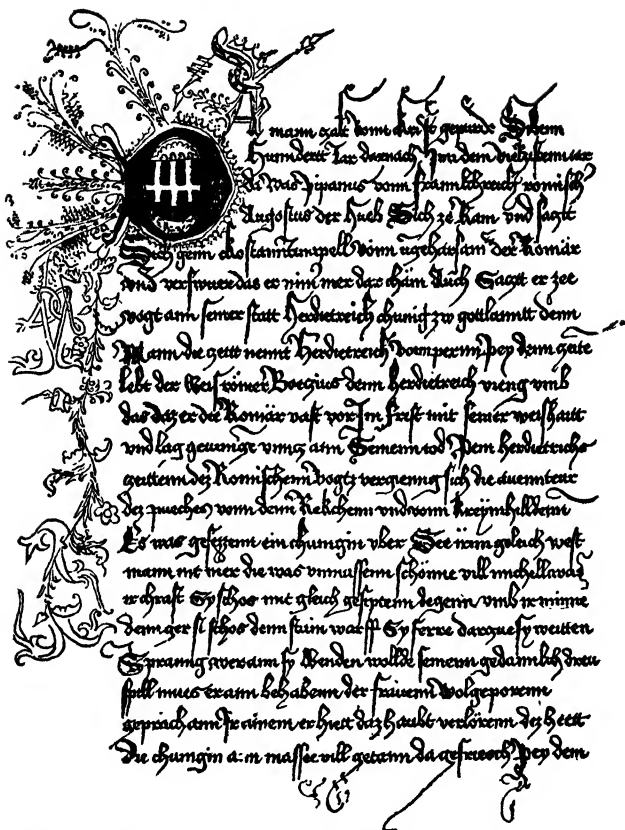 mann zalt vonn gepurde Siben
Hunndertt Jar darnach Inn dem vietzikistem iar
da was Pipanus vonn frannkchreich romisch
Augostus der hueb Sich ze Ram vnd satzt
Sich genn Costanntinnpell vonn vngehorsam der Romär
vnd verswuer das er nimmer dar chäm Auch Satzt er zee
vogt ann seiner statt Herdietreich chunig zw gottlanntt denn
Mann die zeitt nennt Herdietreich vonn pernn Pey denn zeite
lebt der Weis römer Boezius denn Herdietreich vieng vmb
das daz er die Romär vast vor Im frist mit seiner weishaitt
vnd lag gevannge vnnz ann Seinenn tod Pein Herdietrichs
zeittenn dez Romischenn vogtz vergienng sich die auenntewr
dez pueches vonn denn Rekchenn vnd vonn Kreymhilldenn
Es was gesessenn ein chunigin vber See irnn geleich west
mann nit mer die was vnmassenn schönne vill michell was
ir chrafft Sy schos mit gleich degenn vmb ir minne
denn ger si schos denn stain warff Sy ferre darzue sy weitten
Sprannig wer ann sy Wenden wollde seinenn gedannkch dreu
spill mues er ann behabenn der frawenn Wolgeporenn
geprach ann Ir ainem er hiett daz haubt verlorenn dez hett
die chunigin a:n massee vill getann da gefriesch Pey dem